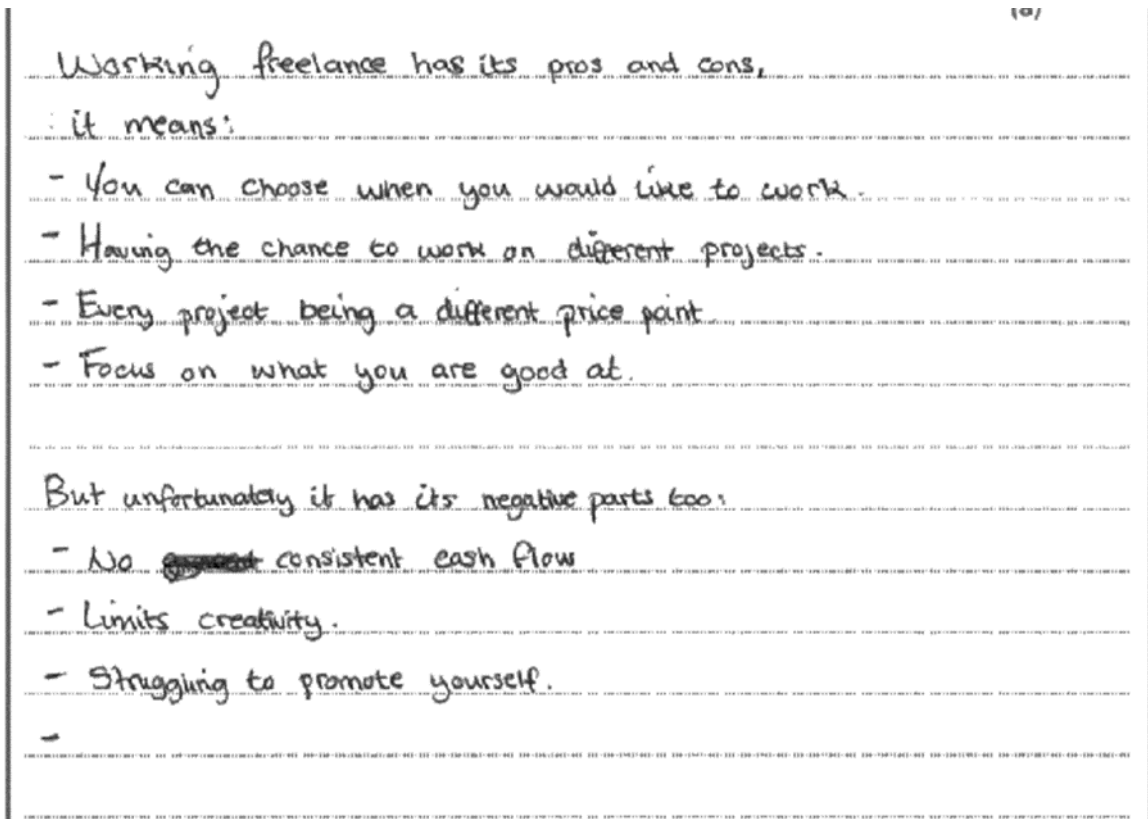 Working freelance has its pros and cons,
it means:
- You can choose when you would like to work.
- Having the chance to work on different projects.
- Every project being a different price point.
- Focus on what you are good at.
But unfortunately it has its negative parts too:
- No consistent cash flow
- Limits creativity.
- Struggling to promote yourself.
-